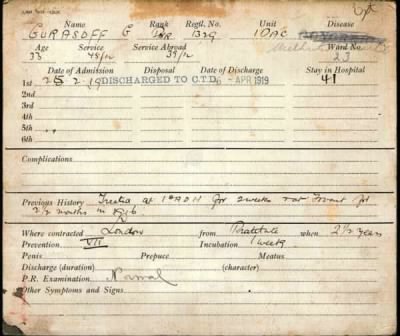 Name Rank Regtl. No. Unit Disease
GURASOFF G Dvr 1329 10AC
Age Service Service Abroad Ward No.
33 48/12 39/12 23
Date of Admission Disposal Date of Discharge Stay in Hospital
1st 25 2 19 DISCHARGED TO C.T.D. 6 - APR 1919 41
2nd
3rd
4th
5th
6th
Complications
Previous History Treated at 1st ADH for 2 weeks not for
2½ months in 1916
Where contracted London from Prostitute when 2½ years
Prevention VII Incubation 1 week
Penis Prepuce Meatus
Discharge (duration) (character)
P.R. Examination Normal
Other Symptoms and Signs